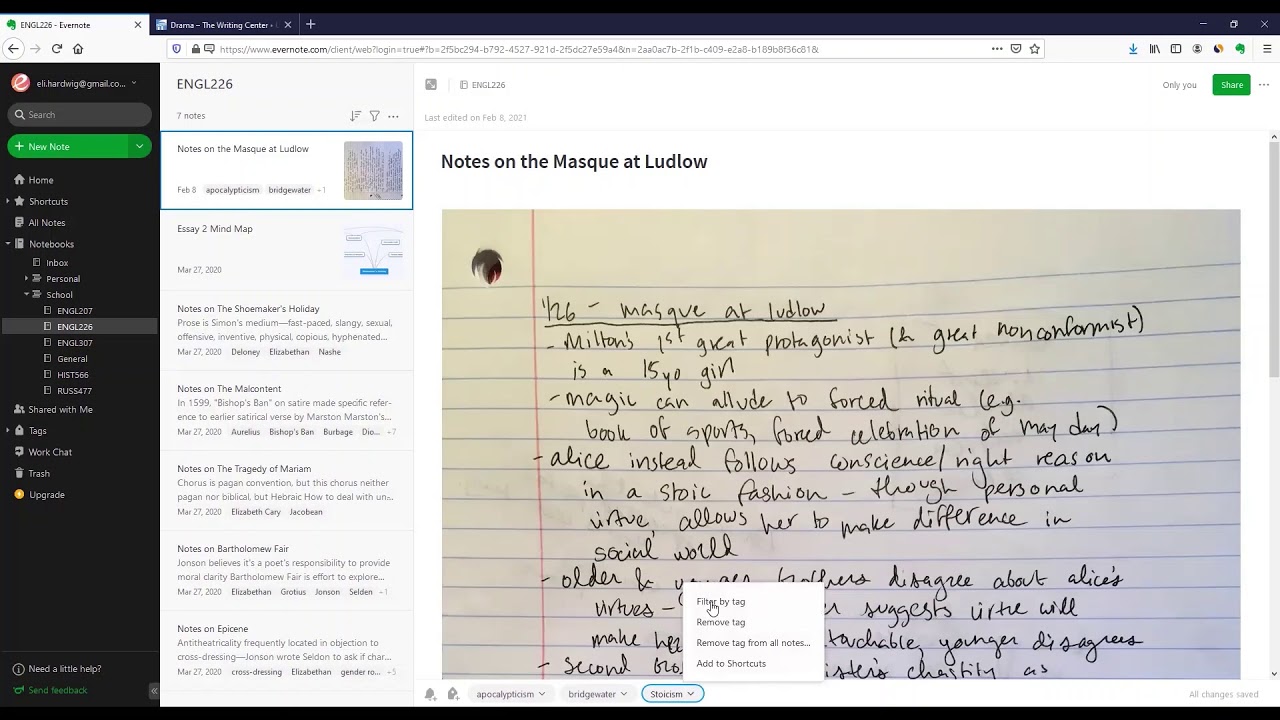 ENGL226 - Evernote
Drama – The Writing Center - U
https://www.evernote.com/client/web?login=true#?b=2f5bc294-b792-4527-921d-2f5dc27e59a4&n=2aa0ac7b-2f1b-c409-e2a8-b189b8f36c81&
eli.hardwig@gmail.co...
Search
New Note
Home
Shortcuts
All Notes
Notebooks
Inbox
Personal
School
ENGL207
ENGL226
ENGL307
General
HIST566
RUSS477
Shared with Me
Tags
Work Chat
Trash
Upgrade
Need a little help?
Send feedback
ENGL226
7 notes
Notes on the Masque at Ludlow
Feb 8 apocalypticism bridgewater +1
Essay 2 Mind Map
Mar 27, 2020
Notes on The Shoemaker's Holiday
Prose is Simon's medium—fast-paced, slangy, sexual,
offensive, inventive, physical, copious, hyphenated...
Mar 27, 2020 Deloney Elizabethan Nashe
Notes on The Malcontent
In 1599, "Bishop's Ban" on satire made specific refer-
ence to earlier satirical verse by Marston Marston's...
Mar 27, 2020 Aurelius Bishop's Ban Burbage Dio... +7
Notes on The Tragedy of Mariam
Chorus is pagan convention, but this chorus neither
pagan nor biblical, but Hebraic How to deal with un...
Mar 27, 2020 Elizabeth Cary Jacobean
Notes on Bartholomew Fair
Jonson believes it's a poet's responsibility to provide
moral clarity Bartholomew Fair is effort to explore...
Mar 27, 2020 Elizabethan Grotius Jonson Selden +1
Notes on Epicene
Antitheatricality frequently located in objection to
cross-dressing—Jonson wrote Seldon to ask if char...
Mar 27, 2020 cross-dressing Elizabethan gender ro... +5
ENGL226
Only you
Share
Last edited on Feb 8, 2021
Notes on the Masque at Ludlow
1/26 - masque at ludlow
- Milton's 1st great protagonist (& great nonconformist)
is a 15yo girl
- magic can allude to forced ritual (e.g.
book of sports, forced celebration of may day)
- alice instead follows conscience/right reason
in a stoic fashion - though personal
virtue, allows her to make difference in
social world
- older & younger brothers disagree about alice's
virtues - suggests virtue will
make her younger disagrees
- second chastity as
Filter by tag
Remove tag
Remove tag from all notes...
Add to Shortcuts
apocalypticism
bridgewater
Stoicism
All changes saved